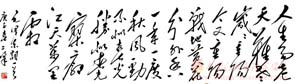 人生易老
天难老
岁岁重阳
今又重阳
战地黄花
分外香
一年一度
秋风劲
不似春光
胜似春光
寥廓
江天万里
霜